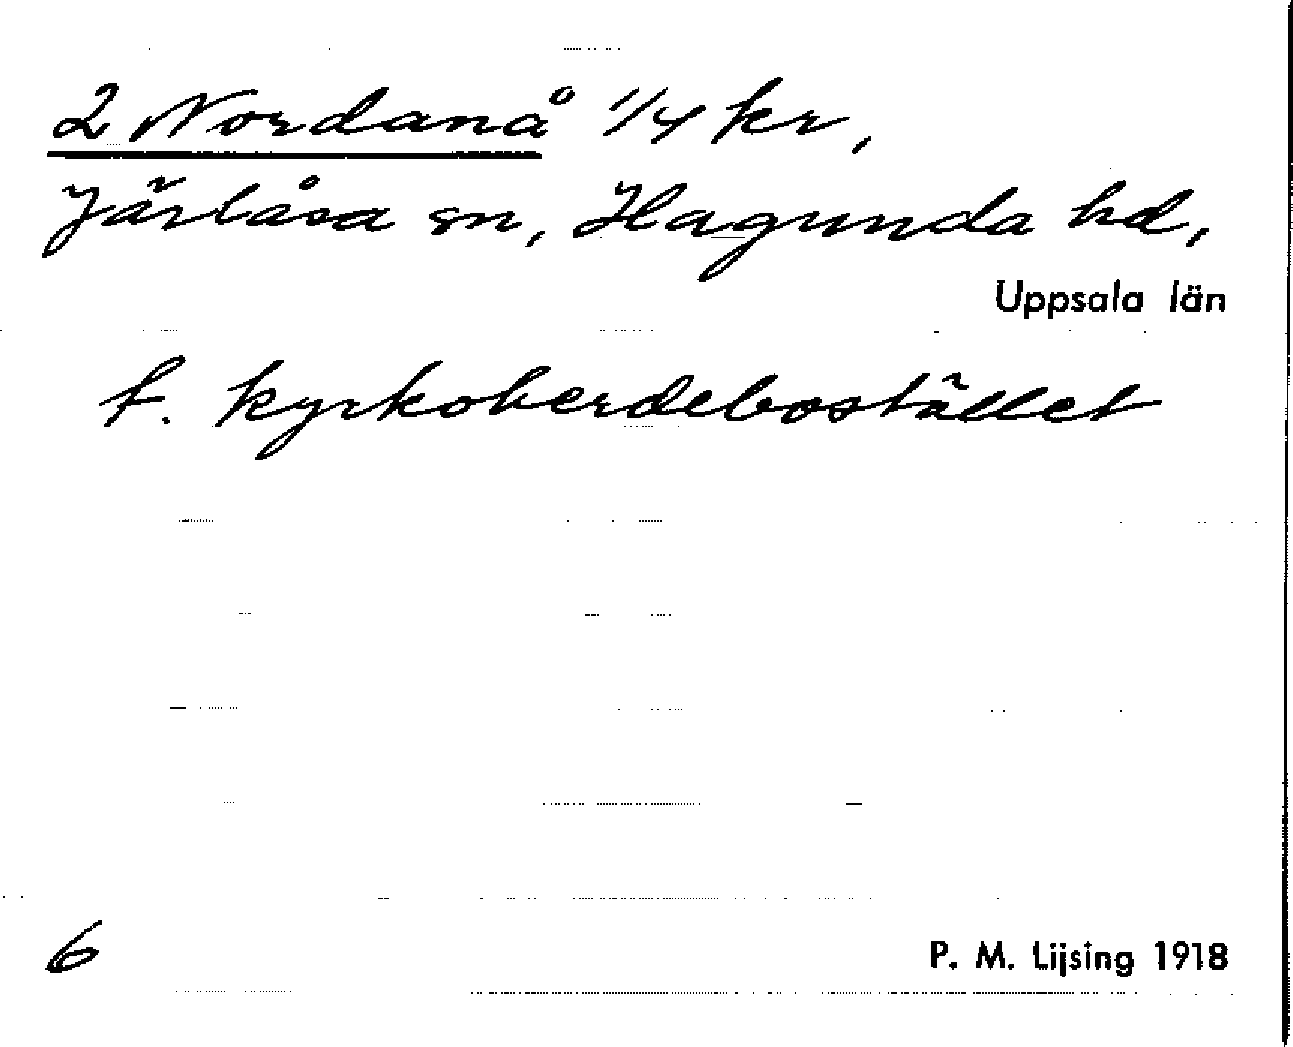 2 Nordanå 1/4 kr,
Järlåsa sn, Hagunda hd,
Uppsala län
f. kyrkoherdebostället
6
P. M. Lijsing 1918